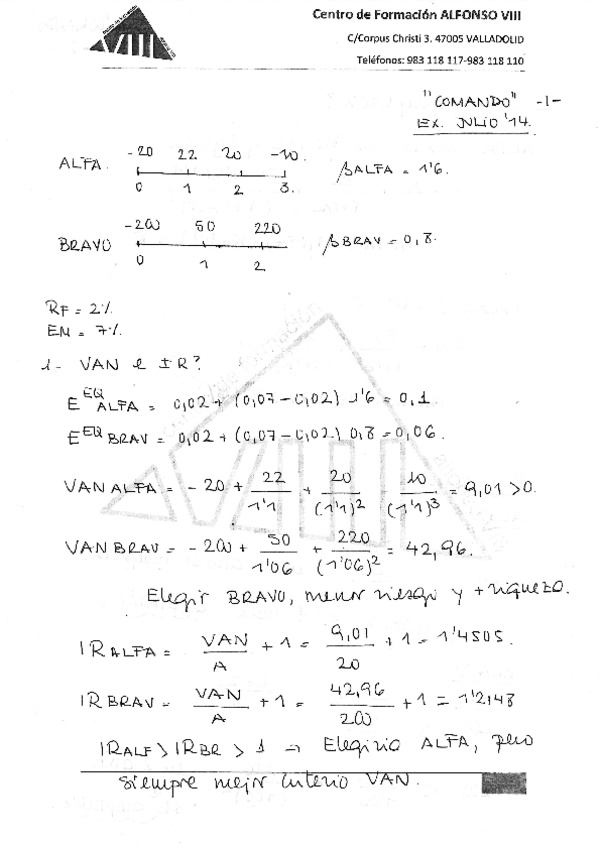 VIII
Centro de Formación ALFONSO VIII
C/Corpus Christi 3. 47005 VALLADOLID
Teléfonos: 983 118 117-983 118 110
"COMANDO" -1-
EX. JULIO '14.
ALFA. -20 22 20 -10. βALFA = 1'6.
0 1 2 3.
BRAVO -200 50 220 βBRAV = 0,8.
0 1 2
RF = 2%.
EM = 7%.
1- VAN e IR?
E^EQ ALFA = 0,02 + (0,07 - 0,02) 1'6 = 0,1.
E^EQ BRAV = 0,02 + (0,07 - 0,02) 0,8 = 0,06.
VAN ALFA = -20 + 22/1'1 + 20/(1'1)^2 - 10/(1'1)^3 = 9,01 > 0.
VAN BRAV = -200 + 50/1'06 + 220/(1'06)^2 = 42,96.
Elegir BRAVO, menor riesgo y + riqueza.
IR ALFA = VAN/A + 1 = 9,01/20 + 1 = 1'4505.
IR BRAV = VAN/A + 1 = 42,96/200 + 1 = 1'2148
IR ALF > IR BR > 1 → Elegiría ALFA, pero
siempre mejor criterio VAN.